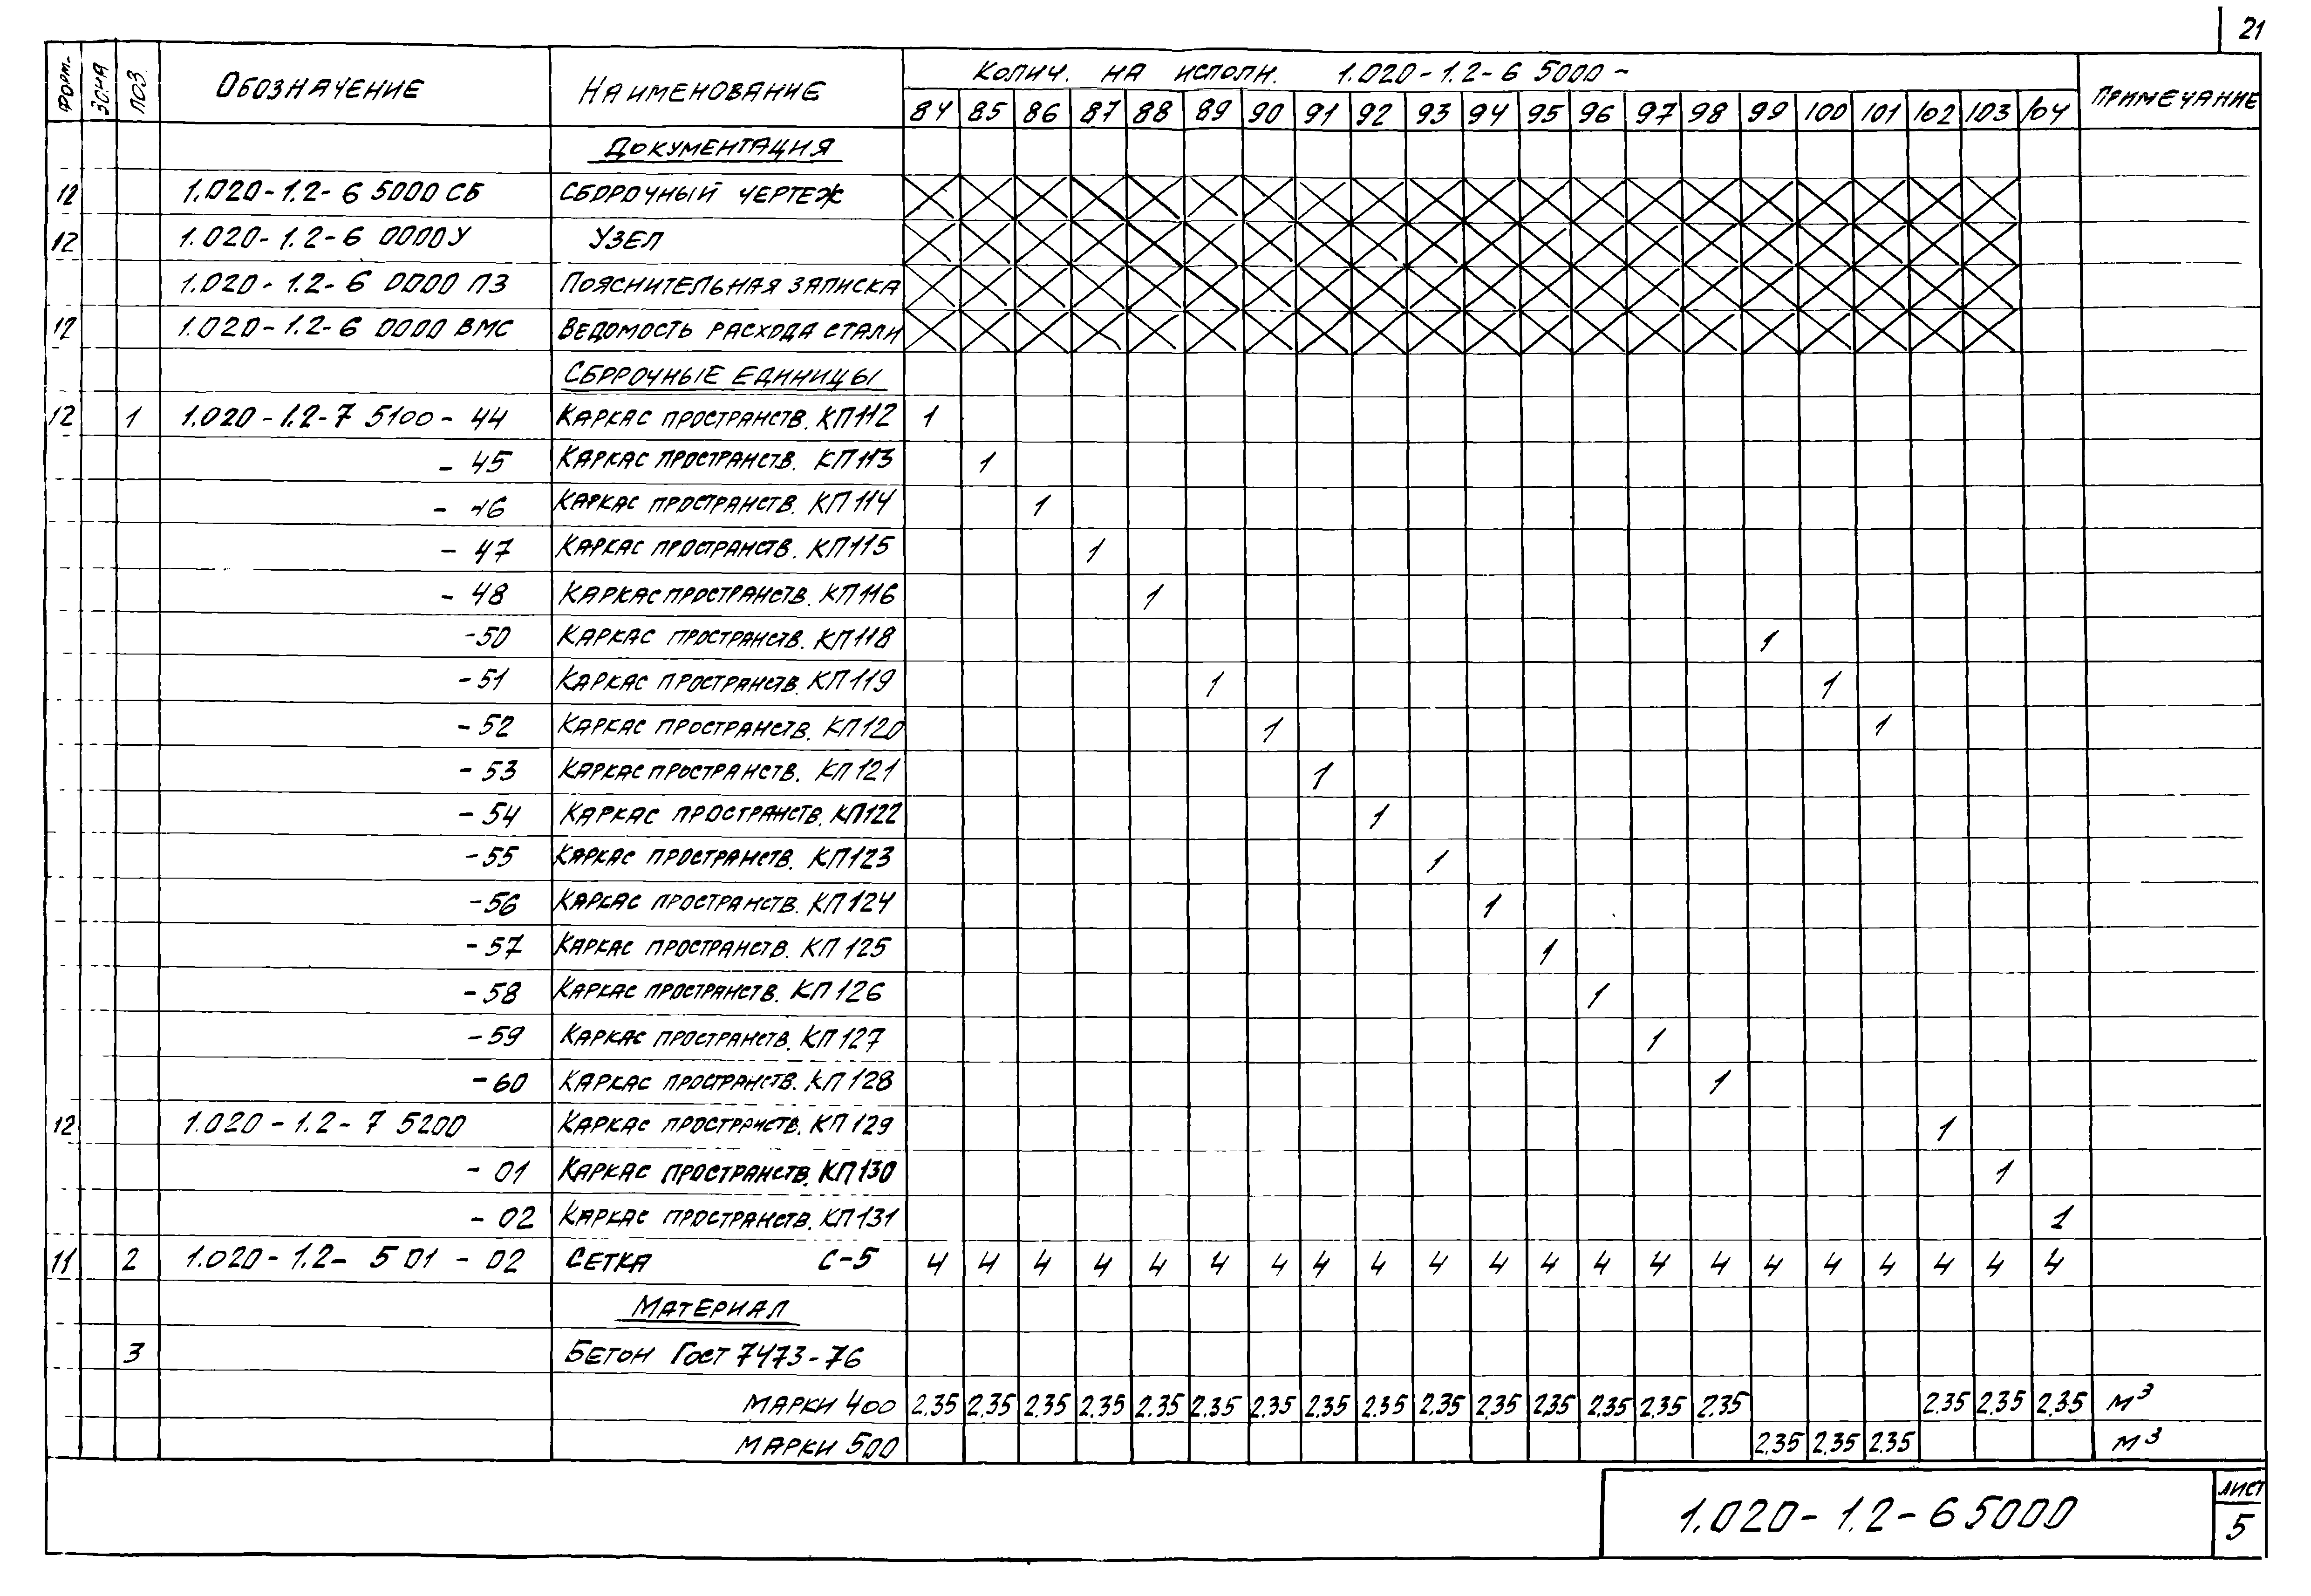 21
Форм. Зона Поз. Обозначение Наименование Колич. на исполн. 1.020-1.2-6 5000- Примечание
84 85 86 87 88 89 90 91 92 93 94 95 96 97 98 99 100 101 102 103 104
Документация
12 1.020-1.2-6 5000 СБ Сборочный чертеж
12 1.020-1.2-6 0000У Узел
1.020-1.2-6 0000 ПЗ Пояснительная записка
12 1.020-1.2-6 0000 ВМС Ведомость расхода стали
Сборочные единицы
12 1 1.020-1.2-7 5100-44 Каркас пространств. КП112 1
-45 Каркас пространств. КП113 1
-46 Каркас пространств. КП114 1
-47 Каркас пространств. КП115 1
-48 Каркас пространств. КП116 1
-50 Каркас пространств. КП118 1
-51 Каркас пространств. КП119 1 1
-52 Каркас пространств. КП120 1 1
-53 Каркас пространств. КП121 1
-54 Каркас пространств. КП122 1
-55 Каркас пространств. КП123 1
-56 Каркас пространств. КП124 1
-57 Каркас пространств. КП125 1
-58 Каркас пространств. КП126 1
-59 Каркас пространств. КП127 1
-60 Каркас пространств. КП128 1
12 1.020-1.2-7 5200 Каркас пространств. КП129 1
-01 Каркас пространств. КП130 1
-02 Каркас пространств. КП131 1
11 2 1.020-1.2- 5 01 - 02 Сетка С-5 4 4 4 4 4 4 4 4 4 4 4 4 4 4 4 4 4 4 4 4 4
Материал
3 Бетон Гост 7473-76
марки 400 2.35 2.35 2.35 2.35 2.35 2.35 2.35 2.35 2.35 2.35 2.35 2.35 2.35 2.35 2.35 2.35 2.35 2.35 м³
марки 500 2.35 2.35 2.35 м³
1.020-1.2-6 5000
Лист
5